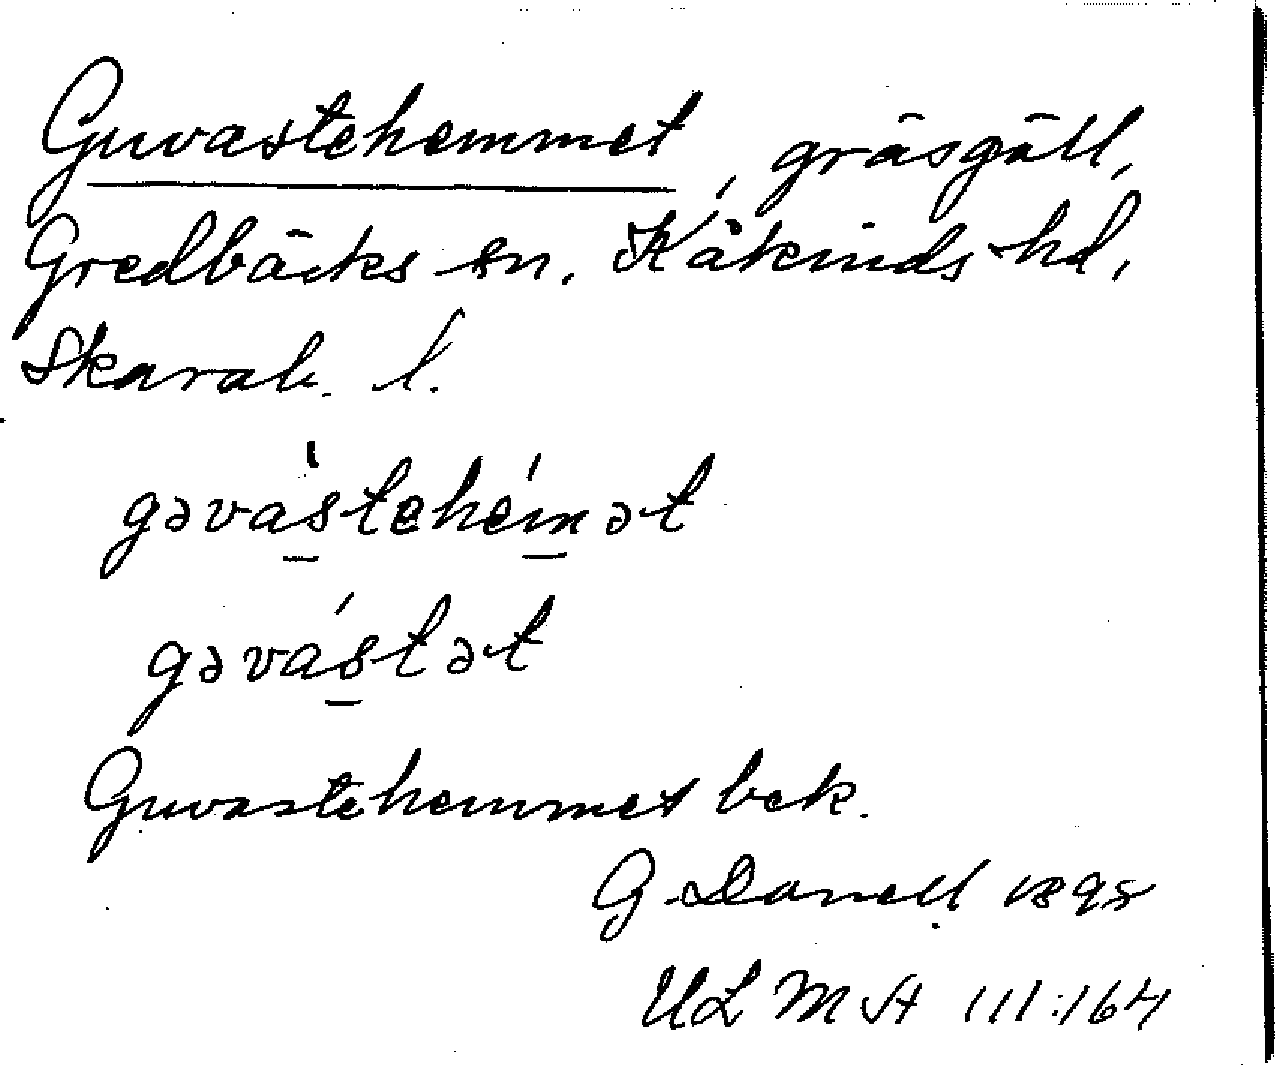 Guvastehemmet, gräsgäll,
Gredbäcks sn. Kåkinds hd,
Skarab. l.
gəvàstehémət
gəvástət
Guvastehemmet bek.
G. Danell 1895
ULMA 111:164